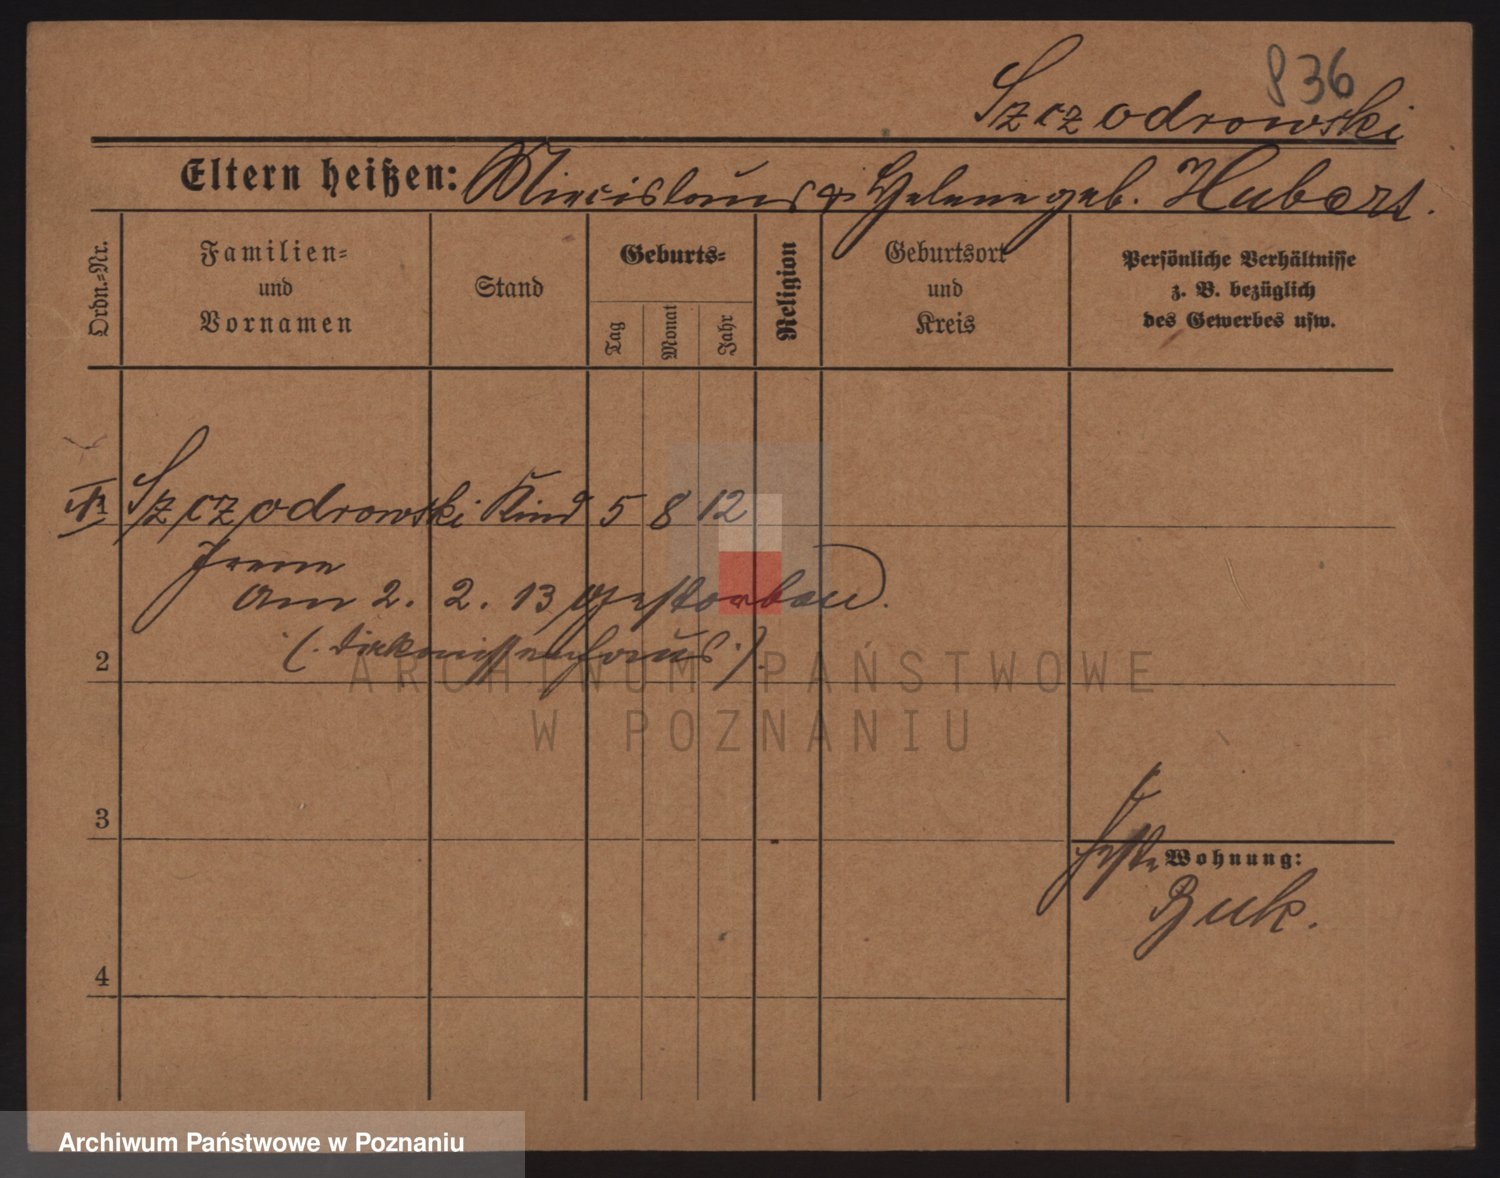 836
Szczodrowski
Eltern heißen: Miecislaus & Helene geb. Hubert.
Ordn.-Nr.
Familien-
und
Vornamen
Stand
Geburts-
Tag
Monat
Jahr
Religion
Geburtsort
und
Kreis
Persönliche Verhältnisse
z. B. bezüglich
des Gewerbes usw.
Szczodrowski Kind 5 8 12
Irene
am 2. 2. 13 gestorben.
2
3
4
Wohnung:
Buk.
ARCHIWUM PAŃSTWOWE
W POZNANIU
Archiwum Państwowe w Poznaniu